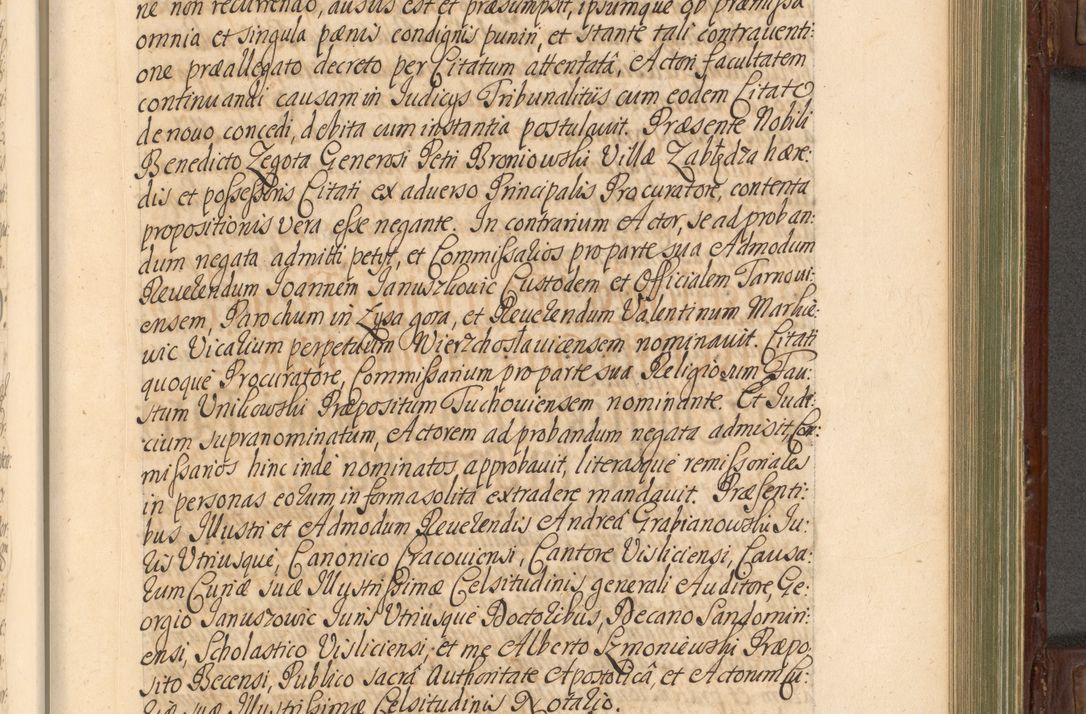 ne non recurrendo, ausus est et præsumpsit, ipsumque ob præmissa
omnia et singula pænis condignis puniri, et stante tali contrauenti:
one præallegato decreto per Citatum attentatâ, Actori facultatem
continuandi causam in Iudicijs Tribunalitijs cum eodem Citato
de nouo concedi, debita cum instantia postulauit. Præsente Nobili
Benedicto Zegota Generosi Petri Broniowski Villæ Zabłędza hære:
dis et possessoris Citati ex aduerso Principalis Procuratore, contenta
propositionis vera esse negante. In contrarium Actor, se ad proban:
dum negata admitti petijt, et Commissarios pro parte sua Admodum
Reuerendum Ioannem Januszkovic Custodem et Officialem Tarnoui:
ensem, Parochum in Łysa gora, et Reuerendum Valentinum Markie:
wic Vicarium perpetuum Wierzchosławicensem nominauit. Citati
quoque Procuratore, Commissarium pro parte sua Religiosum Fau:
stum Unikowski Præpositum Tuchouiensem nominante. Et Iudi:
cium supranominatum, Actorem ad probandum negata admisit, Com:
missarios hinc inde nominatos approbauit, literasque remissoriales
in personas eorum in forma solita extradere mandauit. Præsenti:
bus Illustri et Admodum Reuerendis Andreâ Grabianowski Iu:
ris Utriusque, Canonico Cracouiensi, Cantore Visliciensi, Causa:
rum Curiæ suæ Illustrissimæ Celsitudinis generali Auditore, Ge:
orgio Januszowic Juris Utriusque Doctoribus, Decano Sandomiri:
ensi, Scholastico Visliciensi, et me Alberto Szmoniewski Præpo:
sito Becensi, Publico sacrâ Authoritate Apostolicâ, et Actorum Cu:
riæ suæ Illustrissimæ Celsitudinis Notario.